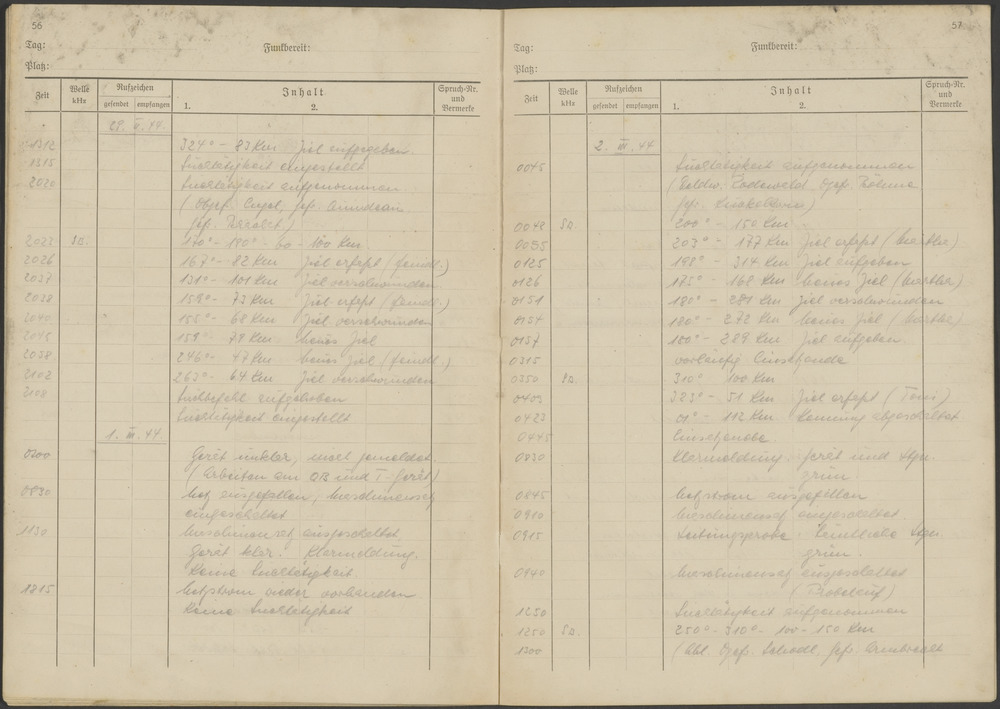 56
Tag:
Funkbereit:
Platz:
Zeit
Welle kHz
Rufzeichen
gesendet empfangen
Inhalt
1. 2.
Spruch-Nr. und Vermerke
29. II. 44.
1312 324° - 83 Km Ziel aufgegeben.
1315 Suchtätigkeit eingestellt
2020 Suchtätigkeit aufgenommen
(Obgef. Engel, Gef.
Gef.
2022 Sa. 170° - 180° - 60 - 100 Km.
2026 167° - 82 Km Ziel erfaßt (feindl.)
2027 131° - 101 Km Ziel verschwunden.
2028 159° - 73 Km Ziel erfaßt (feindl.)
2040 155° - 68 Km Ziel verschwunden
2045 159° - 74 Km neues Ziel
2058 246° - 47 Km neues Ziel (feindl.)
2102 262° - 64 Km Ziel verschwunden
2108 Suchbefehl aufgehoben
Suchtätigkeit eingestellt
1. III. 44.
0700 Gerät unklar, nach gemeldet.
(Arbeiten am QB und T-Gerät)
0830 Netz ausgefallen, Maschinensatz
eingeschaltet
1130 Maschinensatz ausgeschaltet
Gerät klar. Klarmeldung.
Keine Suchtätigkeit.
1815 Netzstrom wieder vorhanden
Keine Suchtätigkeit
57
Tag:
Funkbereit:
Platz:
Zeit
Welle kHz
Rufzeichen
gesendet empfangen
Inhalt
1. 2.
Spruch-Nr. und Vermerke
2. III. 44
0045 Suchtätigkeit aufgenommen
Ogef. Böhme
Gef.
0048 Sa. 200° - 150 Km
0055 203° - 177 Km Ziel erfaßt
0125 198° - 314 Km Ziel aufgeben
0126 175° - 168 Km neues Ziel
0151 180° - 281 Km Ziel verschwunden
0154 180° - 272 Km neues Ziel
0157 180° - 289 Km Ziel aufgeben
0315 vorläufig Einsatzende
0350 Sa. 310° 100 Km
0403 323° - 51 Km Ziel erfaßt
0423 01° - 112 Km Kennung abgeschaltet
0445 Einsatzende.
0830 Klarmeldung. Gerät und
grün.
0845 Netzstrom ausgefallen
0910 Maschinensatz eingeschaltet.
0915 Leitungsprobe. Sämtliche
grün.
0940 Maschinensatz ausgeschaltet
(Probelauf)
1250 Suchtätigkeit aufgenommen
1250 Sa. 250° - 310° - 100 - 150 Km
1300 (Abl. Ogef. Gef. Armbrecht